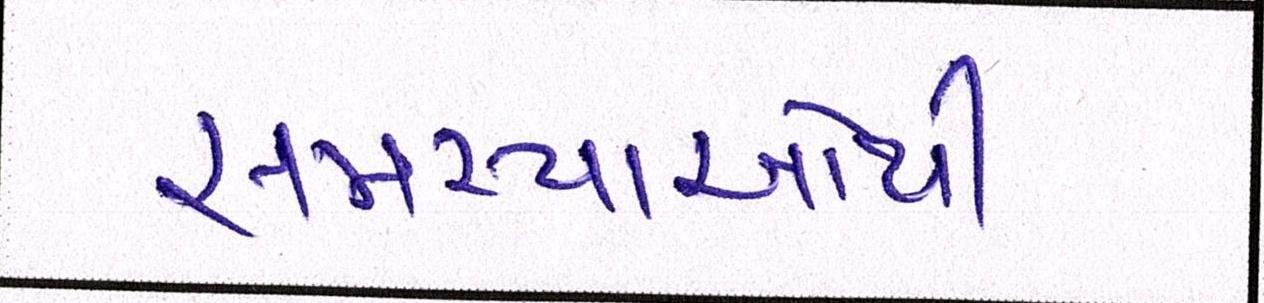 સમસ્યાઓથી